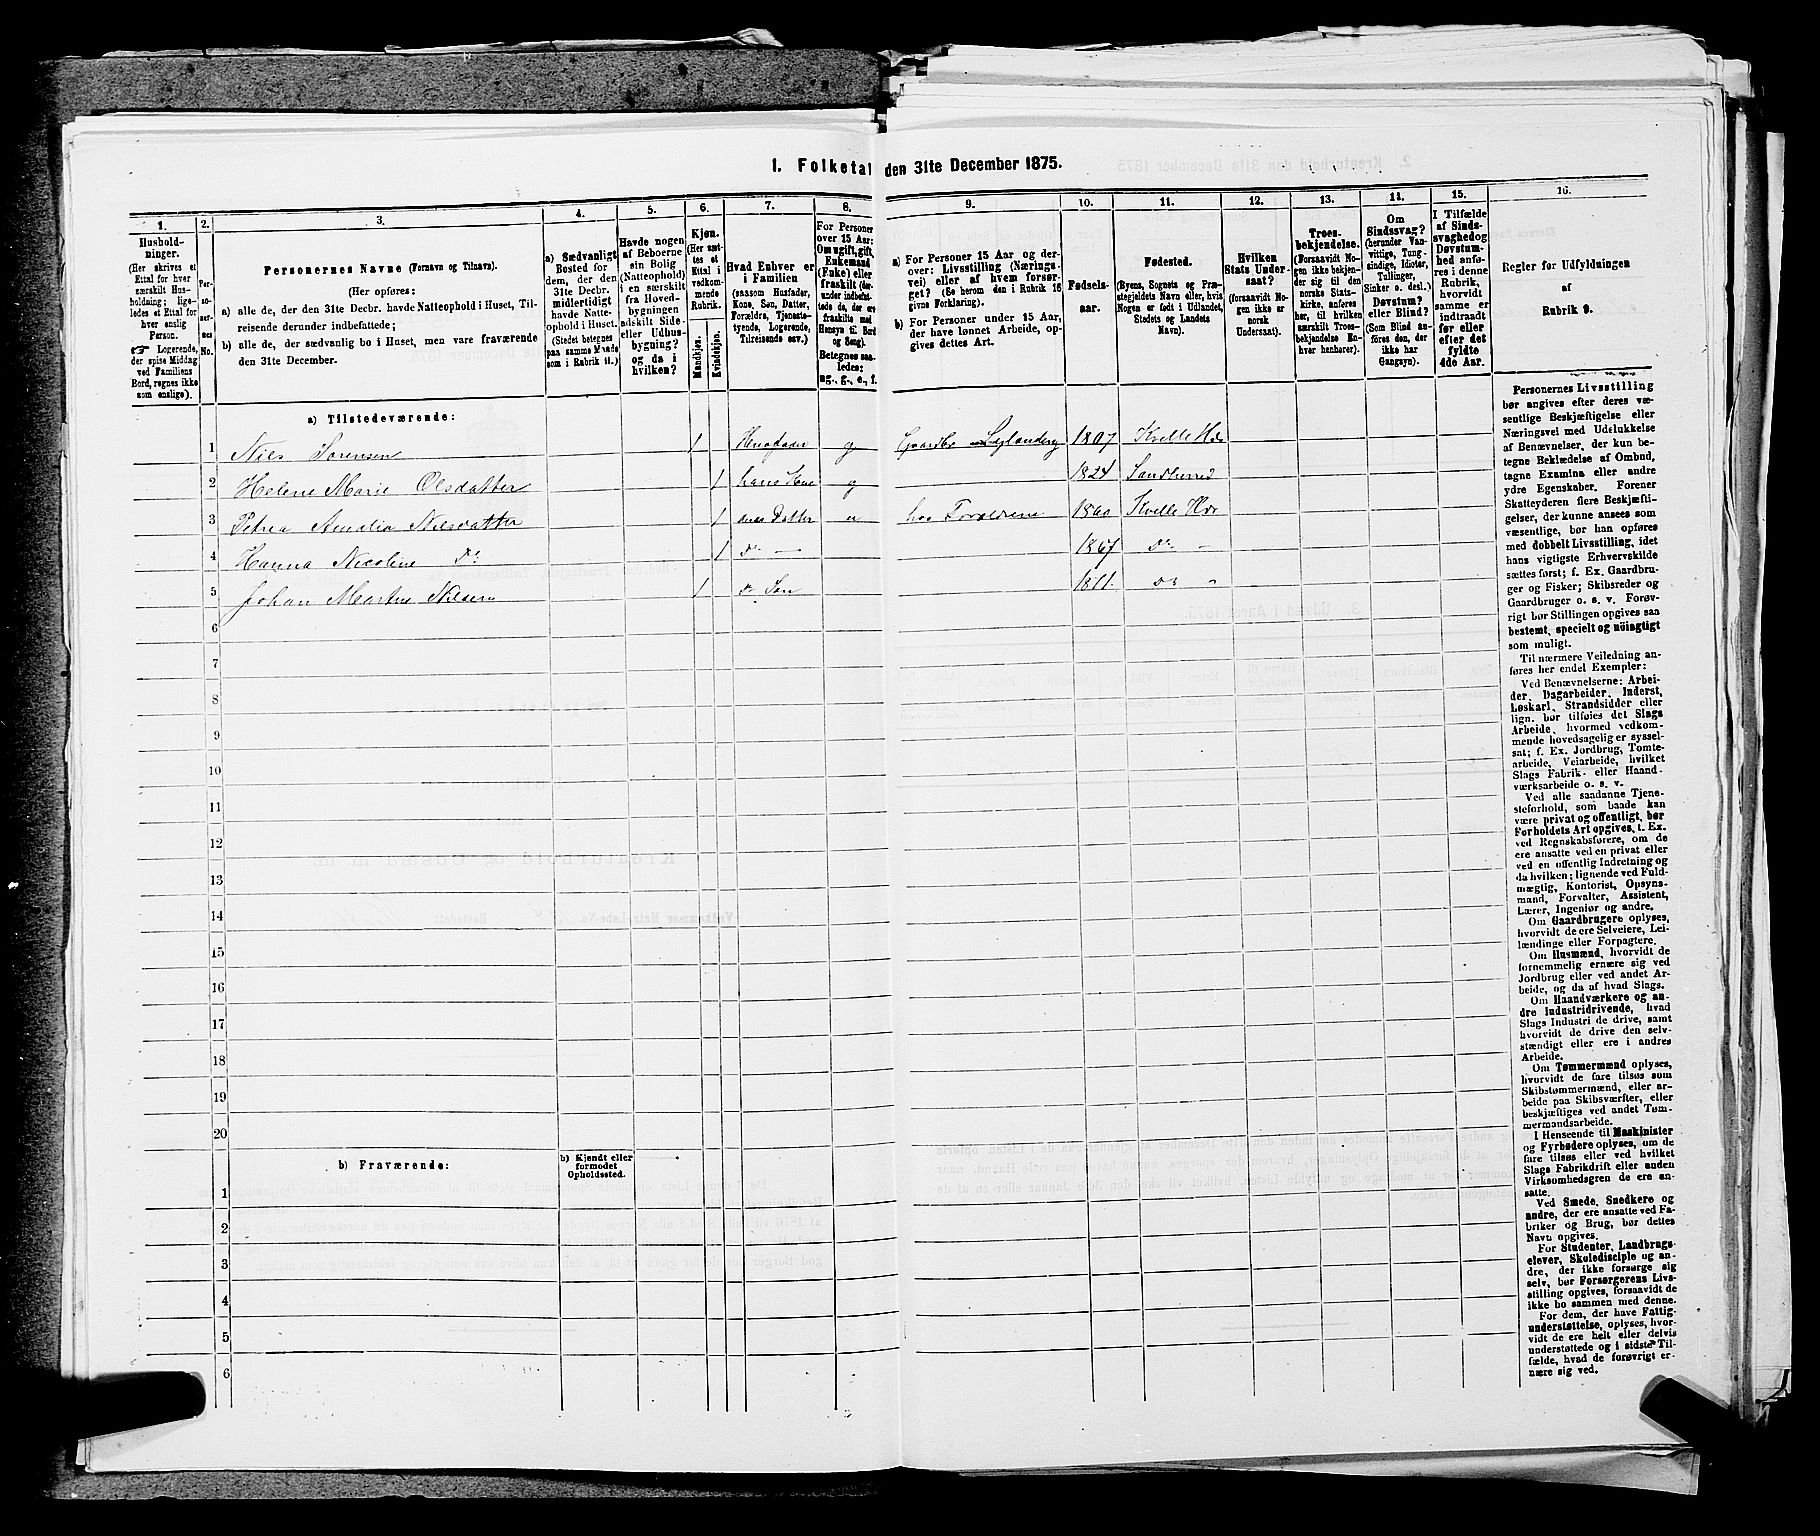 1. Folketal den 31te December 1875.
1.
2.
3.
4.
5.
6.
7.
8.
9.
10.
11.
12.
13.
14.
15.
16.
Husholdninger.
(Her skrives et Ettal for hver særskilt Husholdning; ligeledes et Ettal for hver enslig Person.
☞ Logerende, der spise Middag ved Familiens Bord, regnes ikke som enslige).
Personernes No.
Personernes Navne (Fornavn og Tilnavn).
(Her opføres:
a) alle de, der den 31te Decbr. havde Natteophold i Huset, Tilreisende derunder indbefattede;
b) alle de, der sædvanlig bo i Huset, men vare fraværende den 31te December.
a) Sædvanligt Bosted for dem, der den 31te Decbr. midlertidigt havde Natteophold i Huset. (Stedet betegnes paa samme Maade som i Rubrik 11.)
Havde nogen af Beboerne sin Bolig (Natteophold) i en særskilt fra Hovedbygningen adskilt Side- eller Udhusbygning? og da i hvilken?
Kjøn.
(Her sættes et Ettal i vedkommende Rubrik.
Mandkjøn.
Kvindekjøn.
Hvad Enhver er i Familien
(saasom Husfader, Kone, Søn, Datter, Forældre, Tjenestetyende, Logerende, Tilreisende osv.)
For Personer over 15 Aar: Om ugift, gift, Enkemand (Enke) eller fraskilt (derunder indbefattede de, der ere fraskilte med Hensyn til Bord og Seng).
Betegnes saaledes: ug., g., e., f.
a) For Personer 15 Aar og derover: Livsstilling (Næringsvei) eller af hvem forsørget? (Se herom den i Rubrik 16 givne Forklaring).
b) For Personer under 15 Aar, der have lønnet Arbeide, opgives dettes Art.
Fødselsaar.
Fødested.
(Byens, Sognets og Præstegjeldets Navn eller, hvis Nogen er født i Udlandet, Stedets og Landets Navn).
Hvilken Stats Undersaat?
(forsaavidt Nogen ikke er norsk Undersaat).
Troesbekjendelse.
(Forsaavidt Nogen ikke bekjender sig til den norske Statskirke, anføres her, til hvilken særskilt Troesbekjendelse Enhver henhører).
Om Sindssvag? (herunder Vanvittige, Tungsindige, Idioter, Tullinger, Sinker o. desl.) Døvstum? eller Blind? (Som Blind anføres den, der ikke har Gangsyn).
I Tilfælde af Sindssvaghed og Døvstumhed anføres i denne Rubrik, hvorvidt samme er indtraadt før eller efter det fyldte 4de Aar.
Regler før Udfyldningen
af
Rubrik 9.
a) Tilstedeværende:
1 Niels Sørensen 1 Husfader g Gaardbr 1807 Kvelle
2 Helene Marie Olsdatter 1 hans Kone g 1824 Sandherred
3 Petrea Amalia Nilsdatter 1 deres Datter hos Forældrene 1860 Kvelle
4 Hanna Nicoline Do 1 Do — 1867 Do —
5 Johan Martin Nilsen 1 Do Søn 1871 Do "
6
7
8
9
10
11
12
13
14
15
16
17
18
19
20
b) Fraværende:
b) Kjendt eller formodet Opholdssted.
1
2
3
4
5
6
Personernes Livsstilling
bør angives efter deres væsentlige Beskjæftigelse eller
Næringsvei med Udelukkelse
af Benævnelser, der kun betegne Beklædelse af Ombud,
tagne Examina eller andre
ydre Egenskaber. Forener
Skatteyderen flere Beskjæftigelser, der kunne ansees som
væsentlige, bør han opføres
med dobbelt Livsstilling, idet
hans vigtigste Erhvervskilde
sættes først; f. Ex. Gaardbruger og Fisker; Skibsreder og
Gaardbruger o. s. v. Forøvrigt bør Stillingen opgives saa
bestemt, specielt og nöiagtigt
som muligt.
Til nærmere Veiledning anføres her endel Exempler:
Ved Benævnelserne: Arbeider, Dagarbeider, Inderst,
Løskarl, Strandsidder eller
lign. bør tilføies det Slags
Arbeide, hvormed vedkommende hovedsagelig er sysselsat; f. Ex. Jordbrug, Tomtearbeide, Veiarbeide, hvilket
Slags Fabrik- eller Haandværksarbeide o. s. v.
Ved alle saadanne Tjenesteforhold, som baade kan
være privat og offentligt, bør
Førholdets Art opgives, t. Ex.
ved Regnskabsførere, om de
ere ansatte ved en privat eller
ved en offentlig Indretning og
da hvilken; lignende ved Fuldmægtig, Kontorist, Opsynsmand, Forvalter, Assistent,
Lærer, Ingeniør og andre.
Om Gaardbrugere oplyses,
hvorvidt de ere Selveiere, Leilændinge eller Forpagtere.
Om Husmænd, hvorvidt de
fornemmelig ernære sig ved
Jordbrug eller ved andet Arbeide, og da af hvad Slags.
Om Haandværkere og andre Industridrivende, hvad
Slags Industri de drive, samt
hvorvidt de drive den selvstændigt eller ere i andres
Arbeide.
Om Tømmermænd oplyses,
hvorvidt de fare tilsøs som
Skibstømmermænd, eller arbeide paa Skibsværfter, eller
beskjæftiges ved andet Tømmermandsarbeide.
I Henseende til Maskinister
og Fyrbødere oplyses, om de
fare tilsøs eller ved hvilket
Slags Fabrikdrift eller anden
Virksomhedsgren de ere ansatte.
Ved Smede, Snedkere og
andre, der ere ansatte ved Fabriker og Brug, bør dettes
Navn opgives.
For Studenter, Landbrugselever, Skoledisciple og andre, der ikke forsørge sig
selv, bør Forsørgerens Livsstilling opgives, forsaavidt de
ikke bo sammen med denne.
For dem, der have Fattigunderstøttelse, oplyses, hvorvidt de ere helt eller delvis
understøttede og i sidste Tilfælde, hvad de forøvrigt ernære sig ved.